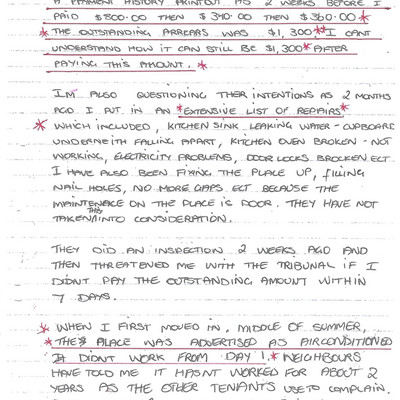 A PAYMENT HISTORY PRINTOUT AS 2 WEEKS BEFORE I
PAID $800.00 THEN $340.00 THEN $360.00 *
* THE OUTSTANDING ARREARS WAS $1,300 ** I CANT
UNDERSTAND HOW IT CAN STILL BE $1,300 * AFTER
PAYING THIS AMOUNT. *
IM ALSO QUESTIONING THER INTENTIONS AS 2 MONTHS
AGO I PUT IN AN * EXTENSIVE LIST OF REPAIRS *
* WHICH INCLUDED, KITCHEN SINK LEAKING WATER - CUPBOARD
UNDERNEITH FALLING APART, KITCHEN OVEN BROKEN - NOT
WORKING, ELECTRICITY PROBLEMS, DOOR LOCKS BROCKEN ECT
I HAVE ALSO BEEN FIXING THE PLACE UP, FILLING
NAIL HOLES, NO MORE GAPS ECT BECAUSE THE
MAINTENACE ON THE PLACE IS POOR. THEY HAVE NOT
TAKEN THIS INTO CONSIDERATION.
THEY DID AN INSPECTION 2 WEEKS AGO AND
THEN THREATENED ME WITH THE TRIBUNAL IF I
DIDNT PAY THE OUTSTANDING AMOUNT WITHIN
7 DAYS.
* WHEN I FIRST MOVED IN, MIDDLE OF SUMMER,
* THE PLACE WAS ADVERTISED AS AIRCONDITIONED
IT DIDNT WORK FROM DAY 1. * NEIGHBOURS
HAVE TOLD ME IT HASNT WORKED FOR ABOUT 2
YEARS AS THE OTHER TENANTS USE TO COMPLAIN.